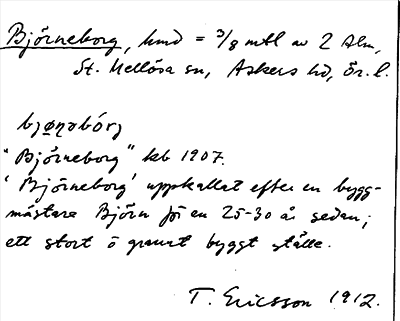 Björneborg, hmd = 3/8 mtl av 2 Alm,
St. Mellösa sn, Askers hd, Ör. l.
bjø̨nəbórj
"Björneborg" kb 1907.
'Björneborg' uppkallat efter en bygg-
mästare Björn för en 25-30 år sedan;
ett stort o grannt byggt ställe.
T. Ericsson 1912.